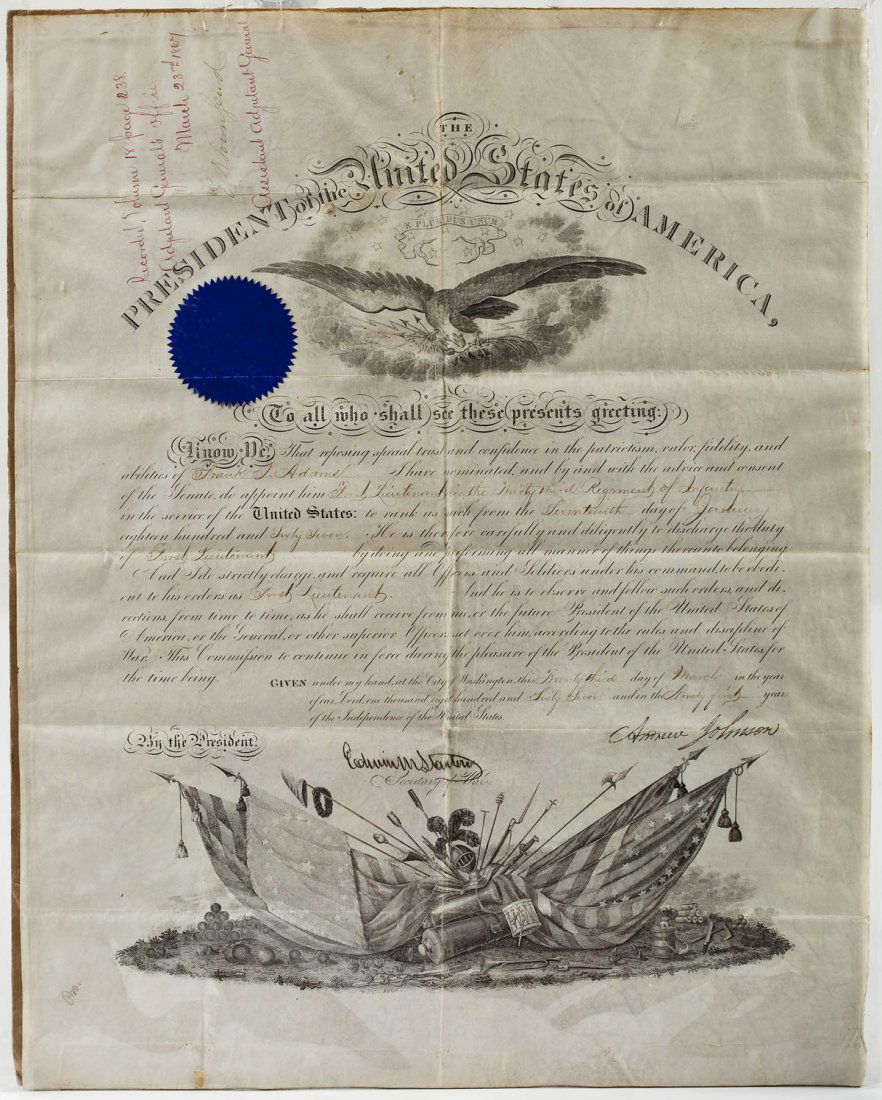 Recorded, Volume 18 page 238.
Adjutant General's office
March 23rd 1867
Assistant Adjutant General
THE
PRESIDENT of the United States of AMERICA,
E PLURIBUS UNUM
To all who shall see these presents greeting:
Know Ye, That reposing special trust and confidence in the patriotism, valor, fidelity, and
abilities of Frank T. Adams I have nominated, and by and with the advice and consent
of the Senate, do appoint him First Lieutenant in the Thirty third Regiment of Infantry
in the service of the United States: to rank as such from the Seventeenth day of January
eighteen hundred and Sixty Seven. He is therefore carefully and diligently to discharge the duty
of First Lieutenant by doing and performing all manner of things thereunto belonging.
And I do strictly charge, and require all Officers and Soldiers under his command, to be obedi-
ent to his orders as First Lieutenant. And he is to observe and follow such orders, and di-
rections, from time to time, as he shall receive from me, or the future President of the United States of
America, or the General, or other superior Officers set over him, according to the rules and discipline of
War. This Commission to continue in force during the pleasure of the President of the United States, for
the time being.
GIVEN under my hand, at the City of Washington, this Twenty third day of March in the year
of our Lord, one thousand eight hundred and Sixty Seven and in the Ninety first year
of the Independence of the United States.
Andrew Johnson
By the President.
Edwin M Stanton
Secretary of War.